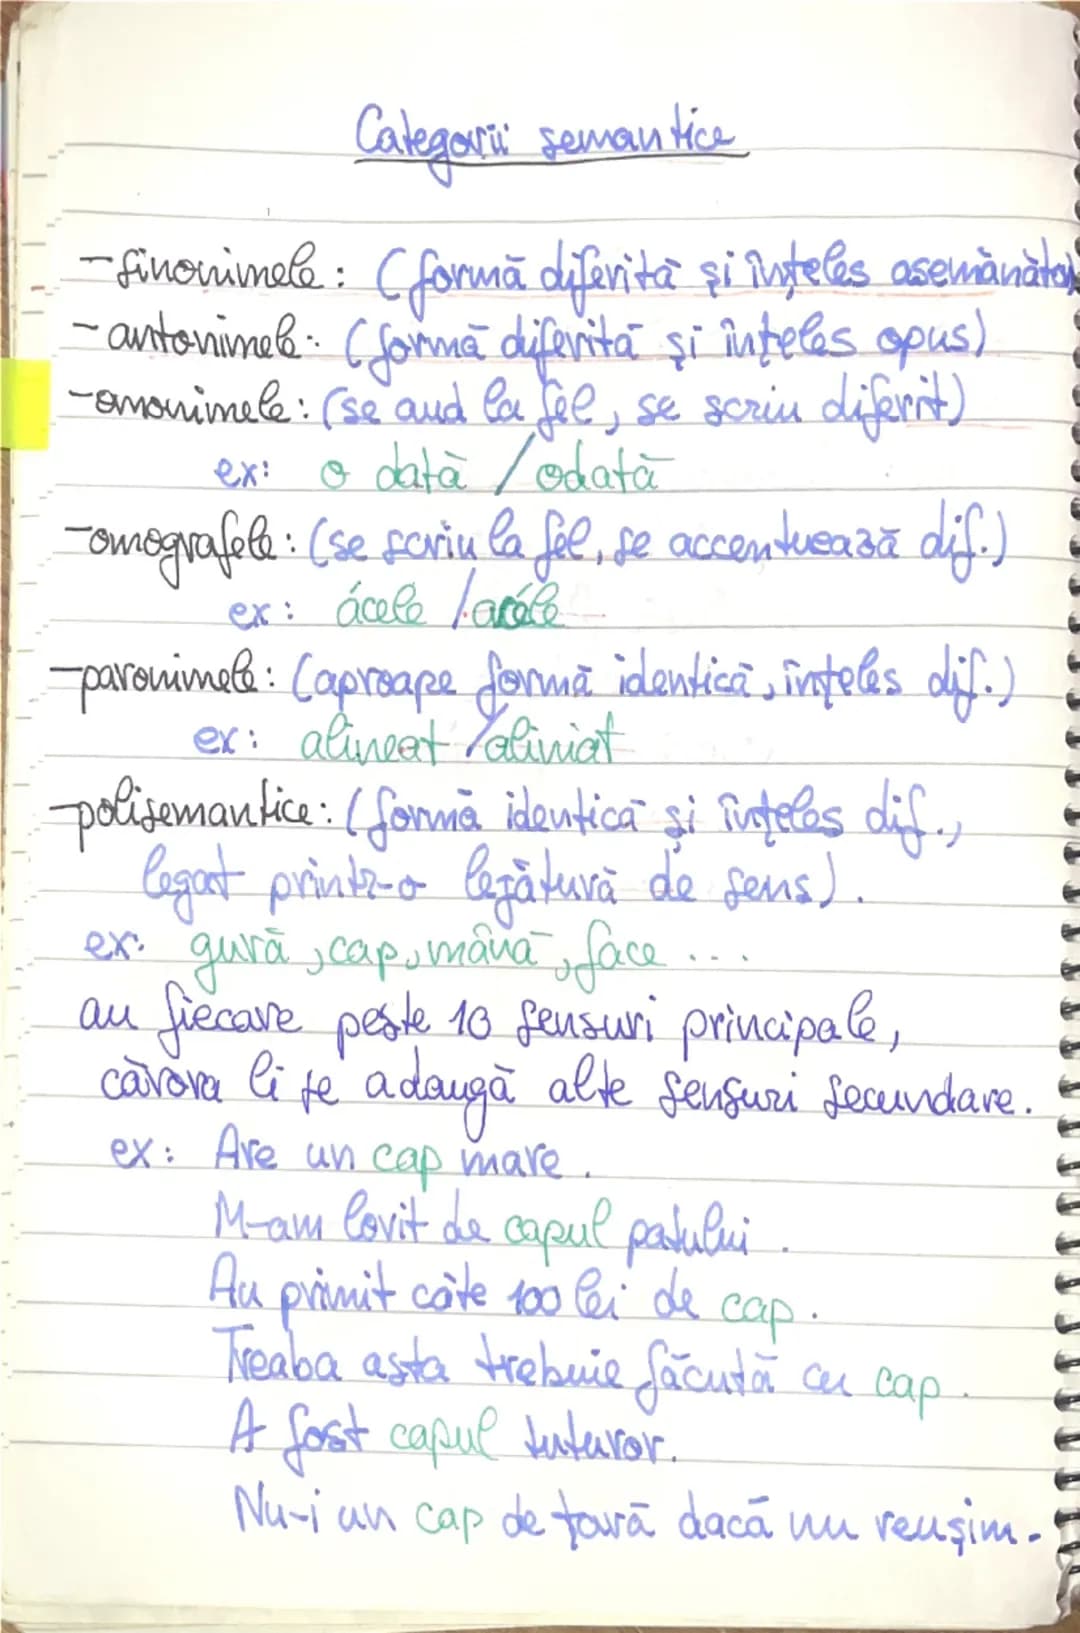 Categorii semantice
-sinonimele: (formă diferită și înțeles asemănător
-antonimele: (formă diferită și înțeles opus)
-omonimele: (se aud la fel, se scriu diferit)
ex: o dată / odată
-omografele: (se scriu la fel, se accentuează dif.)
ex: ácele / acéle
-paronimele: (aproape formă identică, înțeles dif.)
ex: alineat / aliniat
-polisemantice: (formă identică și înțeles dif.,
legat printr-o legătură de sens).
ex: gură, cap, mână, face ...
au fiecare peste 10 sensuri principale,
cărora li se adaugă alte sensuri secundare.
ex: Are un cap mare.
M-am lovit de capul patului.
Au primit câte 100 lei de cap.
Treaba asta trebuie făcută cu cap.
A fost capul tuturor.
Nu-i un cap de țară dacă nu reușim.